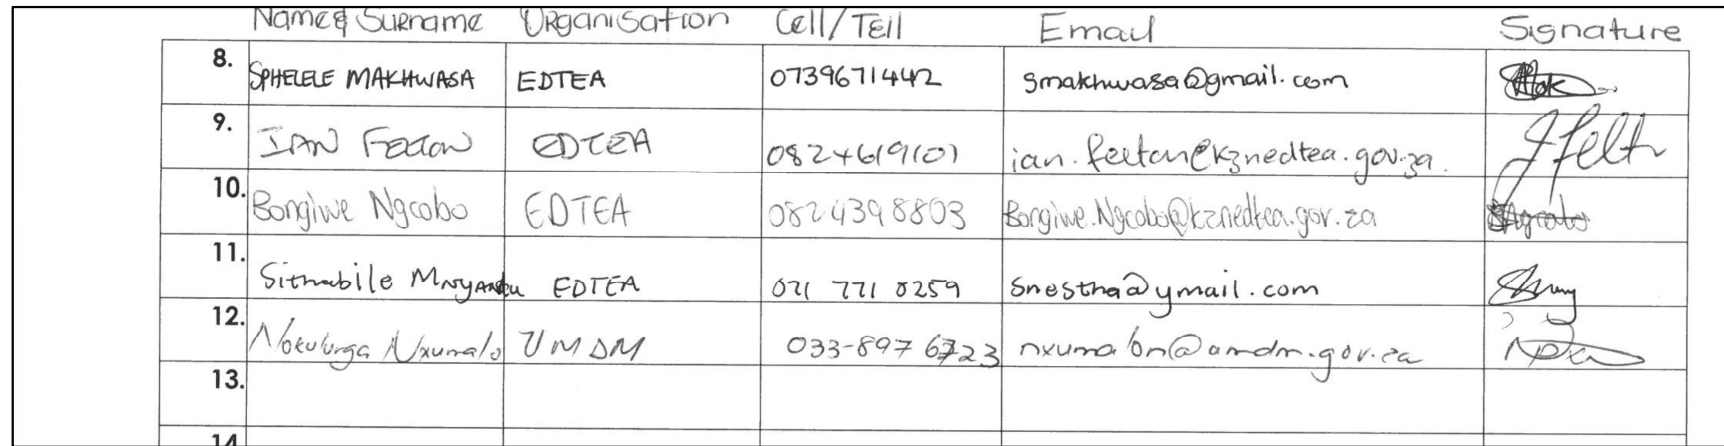 Name & Surname Organisation Cell/Tell Email Signature
8. SPHELELE MAKHWASA EDTEA 0739671442 smakhwasa@gmail.com
9. IAN Felton EDTEA 0824619101 ian.felton@kznedtea.gov.za.
10. Bongiwe Ngcobo EDTEA 0824398803 Bongiwe.Ngcobo@kznedtea.gov.za
11. Sithabile EDTEA 071 771 0259 snestha@ymail.com
12. Nxumalo UMDM 033-897 6723
13.
14